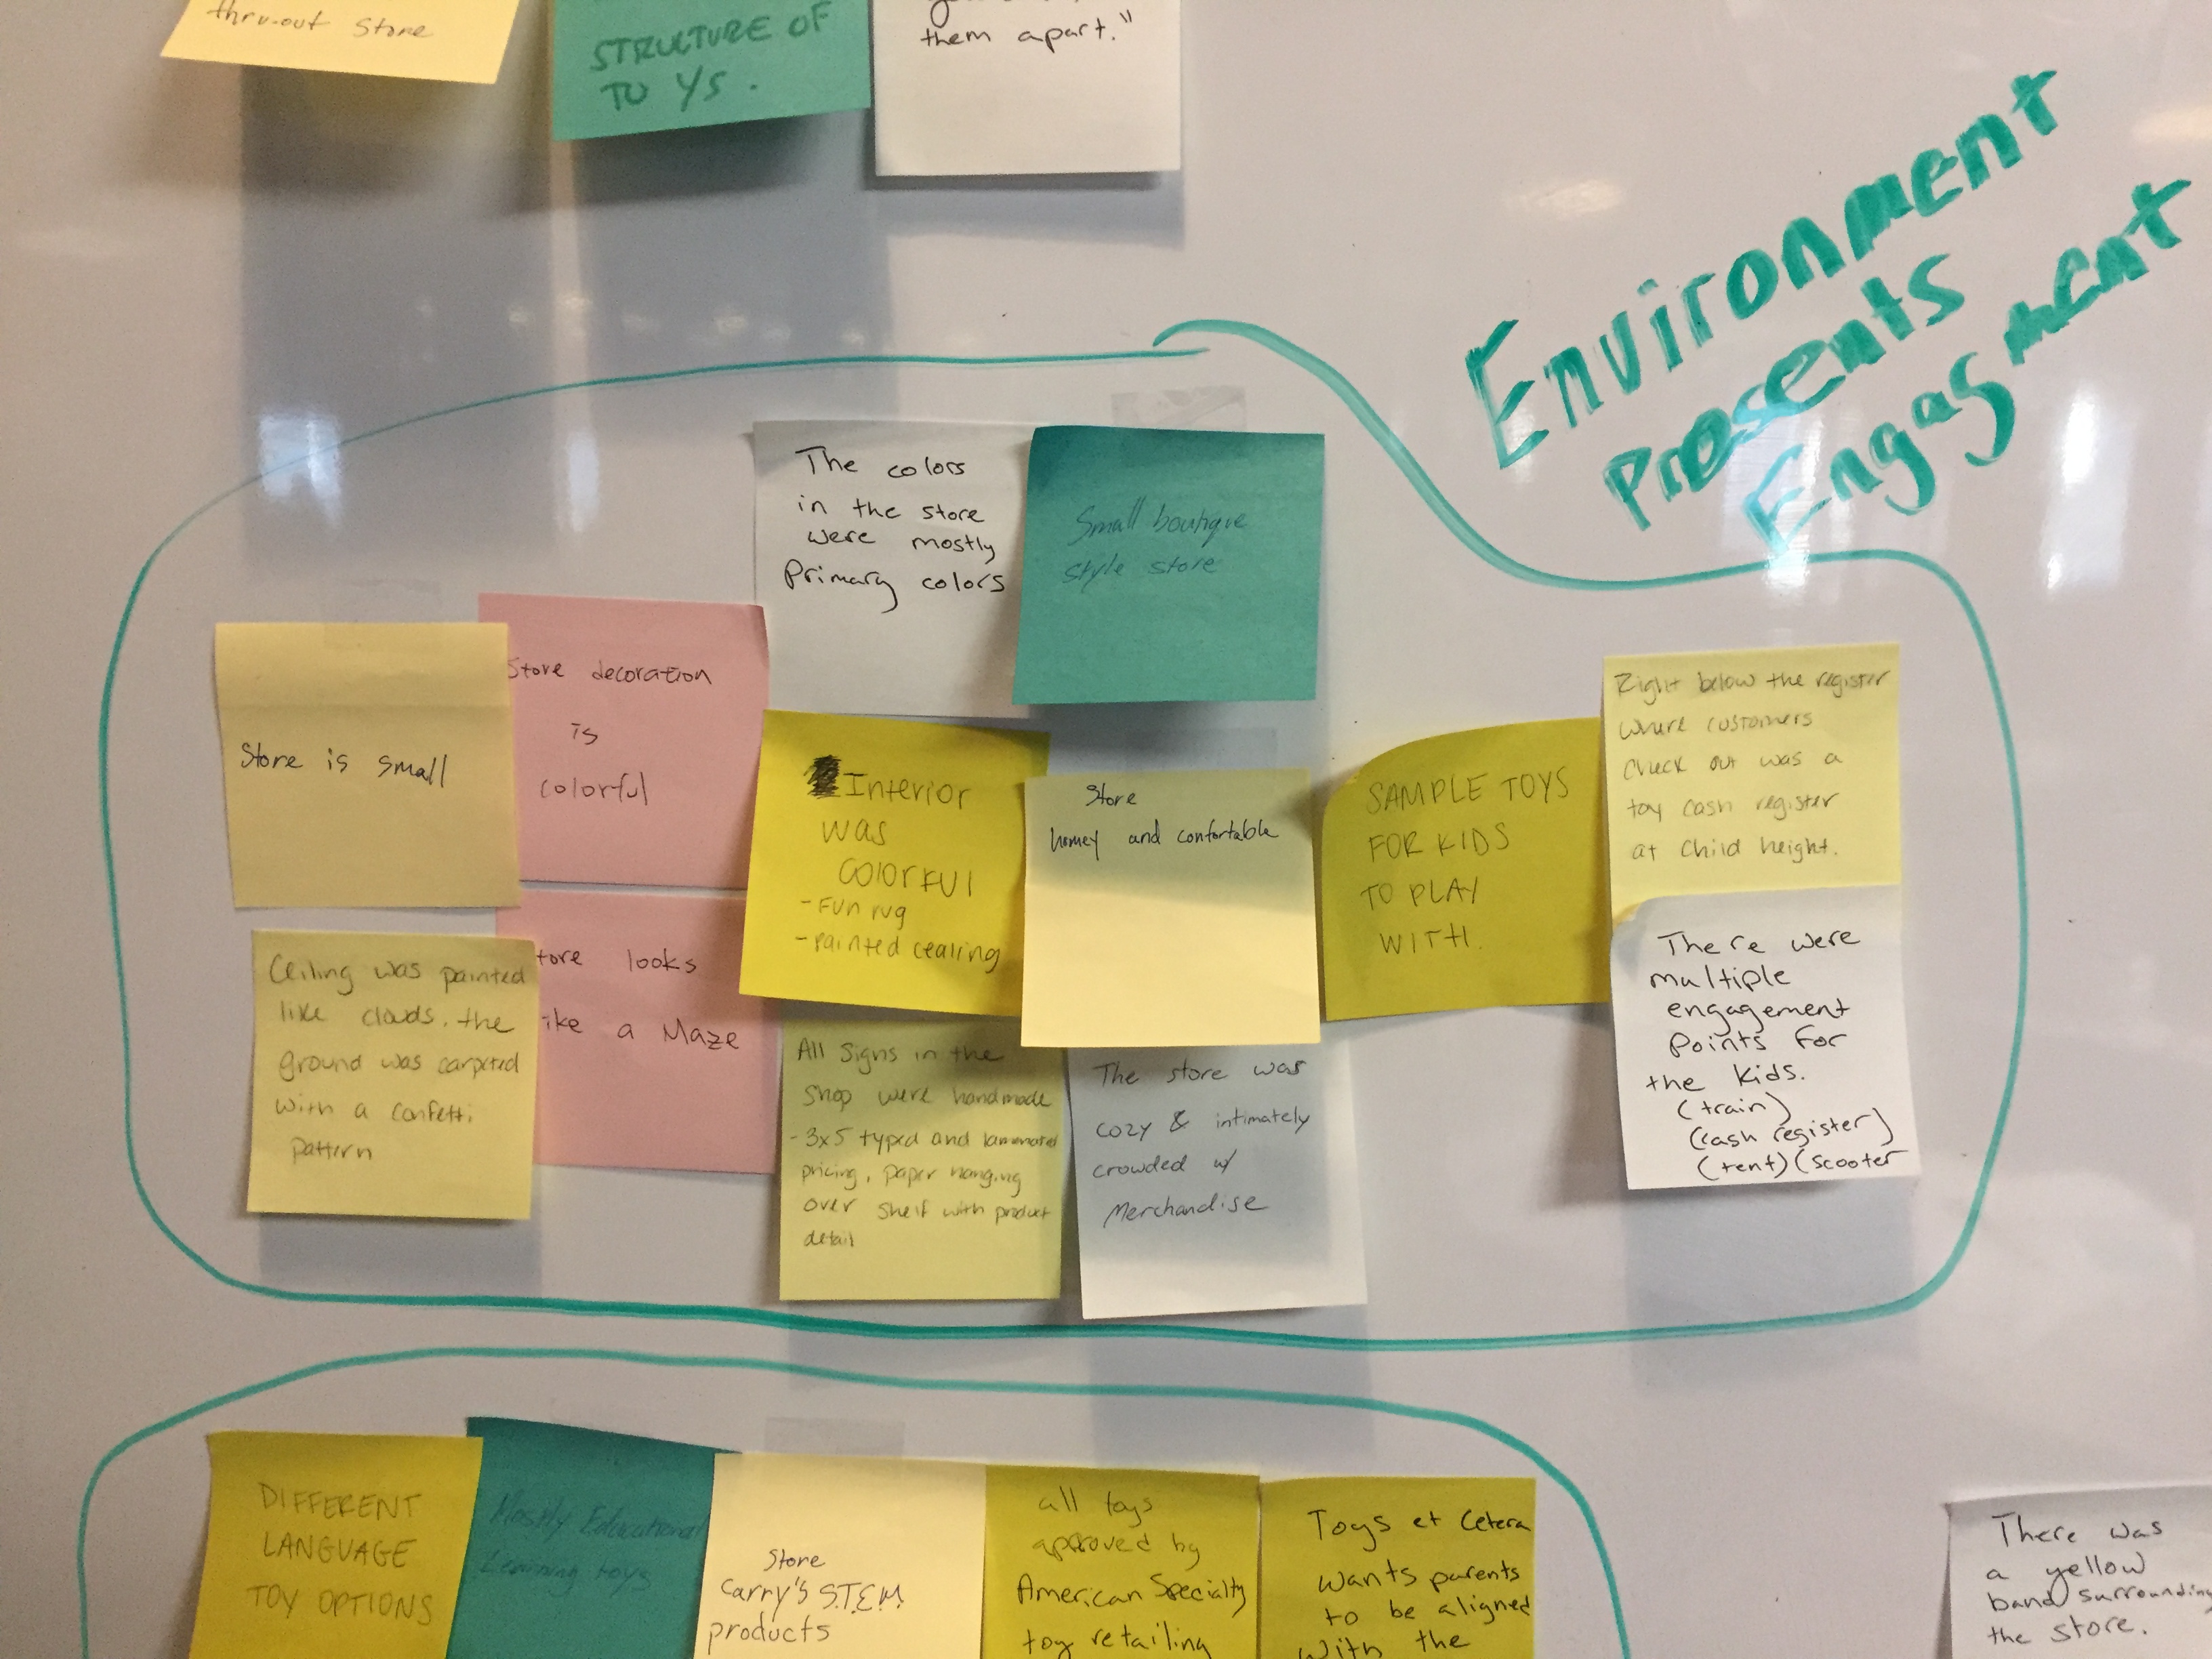 thru-out store
STRUCTURE OF
TO YS.
them apart."
Environment
Presents
Engagment
The colors
in the store
were mostly
Primary colors
Small boutique
style store
Store is small
Store decoration
is
colorful
Interior
was
COLORFUl
- Fun rug
- Painted cealing
Store
homey and confortable
SAMPLE TOYS
FOR KIDS
TO PLAY
WITH.
Right below the register
where customers
check out was a
toy cash register
at child height.
Ceiling was painted
like clouds. the
ground was carpeted
with a confetti
pattern
tore looks
ike a Maze
All signs in the
shop were handmade
- 3x5 typed and laminated
pricing, paper hanging
over shelf with product
detail
The store was
cozy & intimately
crowded w/
Merchandise
There were
multiple
engagement
Points for
the kids.
(train)
(cash register)
(tent) (scooter
DIFFERENT
LANGUAGE
TOY OPTIONS
Mostly Educational
Learning toys
Store
Carry's S.T.E.M.
products
all toys
approved by
American Specialty
toy retailing
Toys et Cetera
wants parents
to be aligned
with the
There was
a yellow
band surrounding
the store.